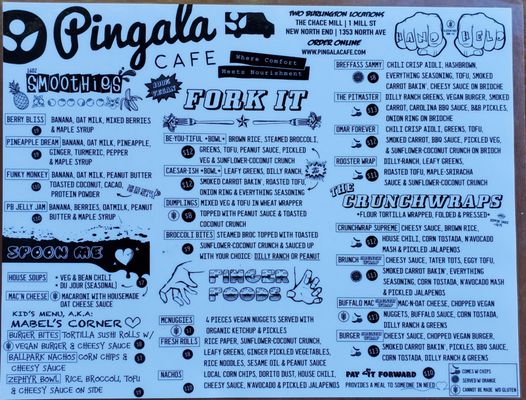 Pingala
CAFE
TWO BURLINGTON LOCATIONS
THE CHACE MILL | 1 MILL ST
NEW NORTH END | 1353 NORTH AVE
ORDER ONLINE
WWW.PINGALACAFE.COM
Where Comfort
Meets Nourishment
100%
VEGAN
SMOOTHIES
BERRY BLISS BANANA, OAT MILK, MIXED BERRIES
& MAPLE SYRUP
PINEAPPLE DREAM BANANA, OAT MILK, PINEAPPLE,
GINGER, TURMERIC, PEPPER
& MAPLE SYRUP
FUNKY MONKEY BANANA, OAT MILK, PEANUT BUTTER
TOASTED COCONUT, CACAO,
PROTEIN POWDER
PB JELLY JAM BANANA, BERRIES, OATMILK, PEANUT
BUTTER & MAPLE SYRUP
SPOON ME
HOUSE SOUPS • VEG & BEAN CHILI
• DU JOUR (SEASONAL)
MAC'N CHEESE MACARONI WITH HOUSEMADE
OAT CHEESE SAUCE
KID'S MENU, A.K.A:
MABEL'S CORNER
BURGER BITES TORTILLA SUSHI ROLLS W/
VEGAN BURGER & CHEESY SAUCE
BALLPARK NACHOS CORN CHIPS &
CHEESY SAUCE
ZEPHYR BOWL RICE, BROCCOLI, TOFU
& CHEESY SAUCE ON SIDE
FORK IT
BE-YOU-TIFUL *BOWL* BROWN RICE, STEAMED BROCCOLI,
$12 GREENS, TOFU, PEANUT SAUCE, PICKLED
VEG & SUNFLOWER-COCONUT CRUNCH
CAESAR-ISH *BOWL* LEAFY GREENS, DILLY RANCH,
$12 SMOKED CARROT BAKIN', ROASTED TOFU,
ONION RING & EVERYTHING SEASONING
DUMPLINGS MIXED VEG & TOFU IN WHEAT WRAPPER
$8 TOPPED WITH PEANUT SAUCE & TOASTED
COCONUT CRUNCH
BROCCOLI BITES STEAMED BROC TOPPED WITH TOASTED
SUNFLOWER-COCONUT CRUNCH & SAUCED UP
WITH YOUR CHOICE: DILLY RANCH OR PEANUT
FINGER
FOODS
MCNUGGIES 4 PIECES VEGAN NUGGETS SERVED WITH
ORGANIC KETCHUP & PICKLES
FRESH ROLLS RICE PAPER, SUNFLOWER-COCONUT CRUNCH,
LEAFY GREENS, GINGER PICKLED VEGETABLES,
RICE NOODLES, SESAME OIL & PEANUT SAUCE
NACHOS LOCAL CORN CHIPS, DORITO DUST, HOUSE CHILI,
CHEESY SAUCE, N'AVOCADO & PICKLED JALAPENOS
HAND HELD
BREFFASS SAMMY CHILI CRISP AIOLI, HASHBROWN,
EVERYTHING SEASONING, TOFU, SMOKED
CARROT BAKIN', CHEESY SAUCE ON BRIOCH
THE PITMASTER DILLY RANCH GREENS, VEGAN BURGER, SMOKED
CARROT, CAROLINA BBQ SAUCE, B&B PICKLES,
ONION RING ON BRIOCHE
OMAR FOREVER CHILI CRISP AIOLI, GREENS, TOFU,
$12 SMOKED CARROT, BBQ SAUCE, PICKLED VEG,
& SUNFLOWER-COCONUT CRUNCH ON BRIOCH
ROOSTER WRAP DILLY-RANCH, LEAFY GREENS,
ROASTED TOFU, MAPLE-SRIRACHA
SAUCE & SUNFLOWER-COCONUT CRUNCH
THE
CRUNCHWRAPS
*FLOUR TORTILLA WRAPPED, FOLDED & PRESSED*
CRUNCHWRAP SUPREME CHEESY SAUCE, BROWN RICE,
HOUSE CHILI, CORN TOSTADA, N'AVOCADO
MASH & PICKLED JALAPENOS
BRUNCH CHEESY SAUCE, TATER TOTS, EGGY TOFU,
SMOKED CARROT BAKIN', EVERYTHING
SEASONING, CORN TOSTADA, N'AVOCADO MASH
& PICKLED JALAPENOS
BUFFALO MAC MAC-N-OAT CHEESE, CHOPPED VEGAN
NUGGETS, BUFFALO SAUCE, CORN TOSTADA,
DILLY RANCH & GREENS
BURGER CHEESY SAUCE, CHOPPED VEGAN BURGER,
SMOKED CARROT BAKIN', PICKLES, BBQ SAUCE,
CORN TOSTADA, DILLY RANCH & GREENS
PAY IT FORWARD $10
PROVIDES A MEAL TO SOMEONE IN NEED
COMES W/ CHIPS
SERVED W/ ORANGE
CANNOT BE MADE W/O GLUTEN